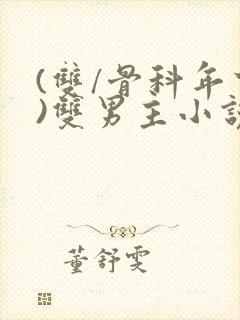 (雙/骨科年
)雙男主小說
董舒雯